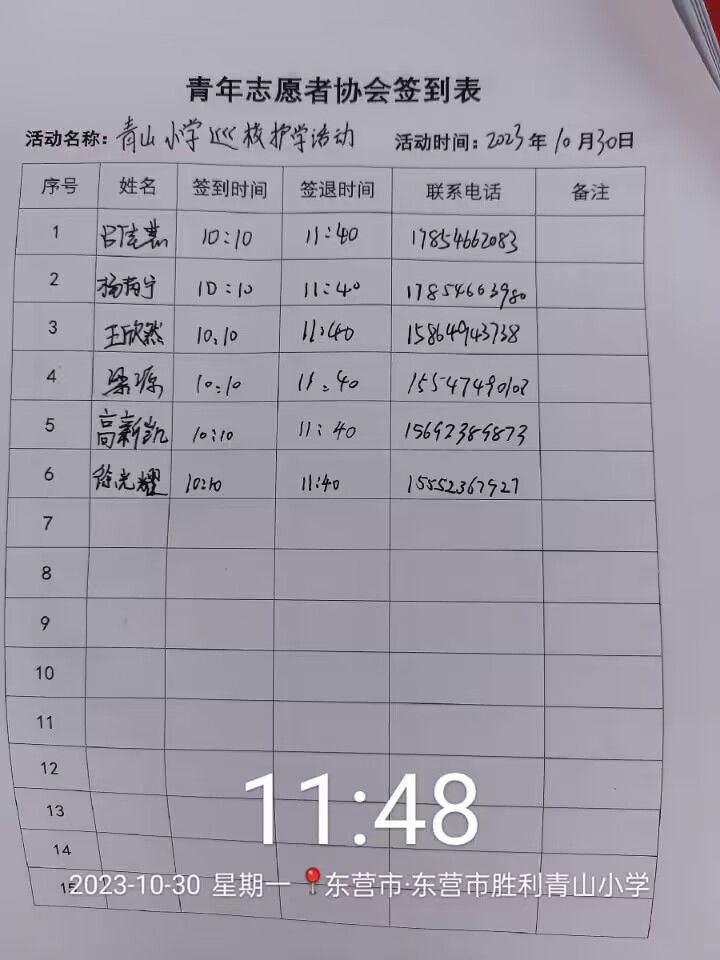 青年志愿者协会签到表
活动名称: 青山小学巡校护学活动 活动时间: 2023年10月30日
序号 姓名 签到时间 签退时间 联系电话 备注
1 10:10 11:40 17854662083
2 10:10 11:40 17854603980
3 王欣然 10:10 11:40 15864943738
4 梁源 10:10 11:40 15547490102
5 高新凯 10:10 11:40 15692389873
6 徐光耀 10:10 11:40 15552367927
7
8
9
10
11
12
13
14
15
11:48
2023-10-30 星期一 东营市·东营市胜利青山小学